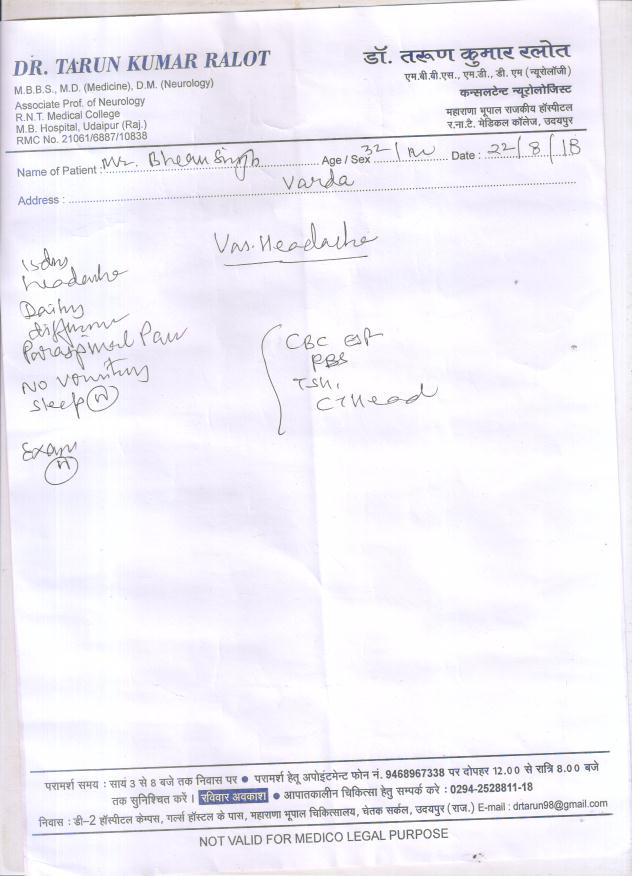 DR. TARUN KUMAR RALOT
M.B.B.S., M.D. (Medicine), D.M. (Neurology)
Associate Prof. of Neurology
R.N.T. Medical College
M.B. Hospital, Udaipur (Raj.)
RMC No. 21061/6887/10838
डॉ. तरूण कुमार रलोत
एम.बी.बी.एस., एम.डी., डी. एम (न्यूरोलॉजी)
कन्सलटेन्ट न्यूरोलोजिस्ट
महाराणा भूपाल राजकीय हॉस्पीटल
र.ना.टे. मेडिकल कॉलेज, उदयपुर
Name of Patient : Mr. Bheem Singh Age / Sex 32 / m Date : 22/8/18
Address : Varda
Vas. Headache
15 days
headache
Daily
diffuse
Paraspinal Pain
No vomiting
Sleep N
Exam
N
CBC ESR
PBS
TSH,
CT Head
परामर्श समय : सायं 3 से 8 बजे तक निवास पर ● परामर्श हेतू अपोइंटमेन्ट फोन नं. 9468967338 पर दोपहर 12.00 से रात्रि 8.00 बजे
तक सुनिश्चित करें । रविवार अवकाश ● आपातकालीन चिकित्सा हेतु सम्पर्क करे : 0294-2528811-18
निवास : डी–2 हॉस्पीटल केम्पस, गर्ल्स हॉस्टल के पास, महाराणा भूपाल चिकित्सालय, चेतक सर्कल, उदयपुर (राज.) E-mail : drtarun98@gmail.com
NOT VALID FOR MEDICO LEGAL PURPOSE